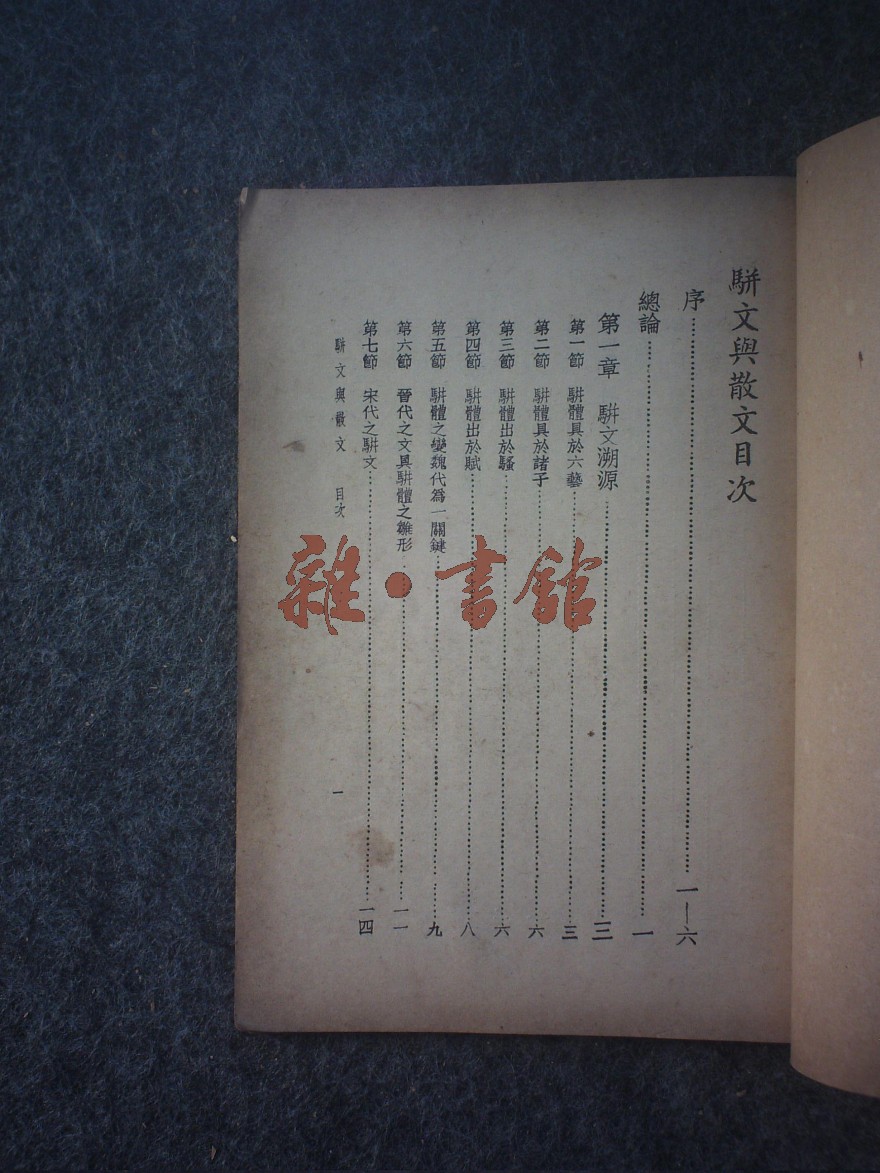 駢文與散文目次
序……一—六
總論……一
第一章 駢文溯源……三
第一節 駢體具於六藝……三
第二節 駢體具於諸子……六
第三節 駢體出於騷……六
第四節 駢體出於賦……八
第五節 駢體之變魏代為一關鍵……九
第六節 晉代之文具駢體之雛形……一一
第七節 宋代之駢文……一四
駢文與散文 目次
一
雜·書館